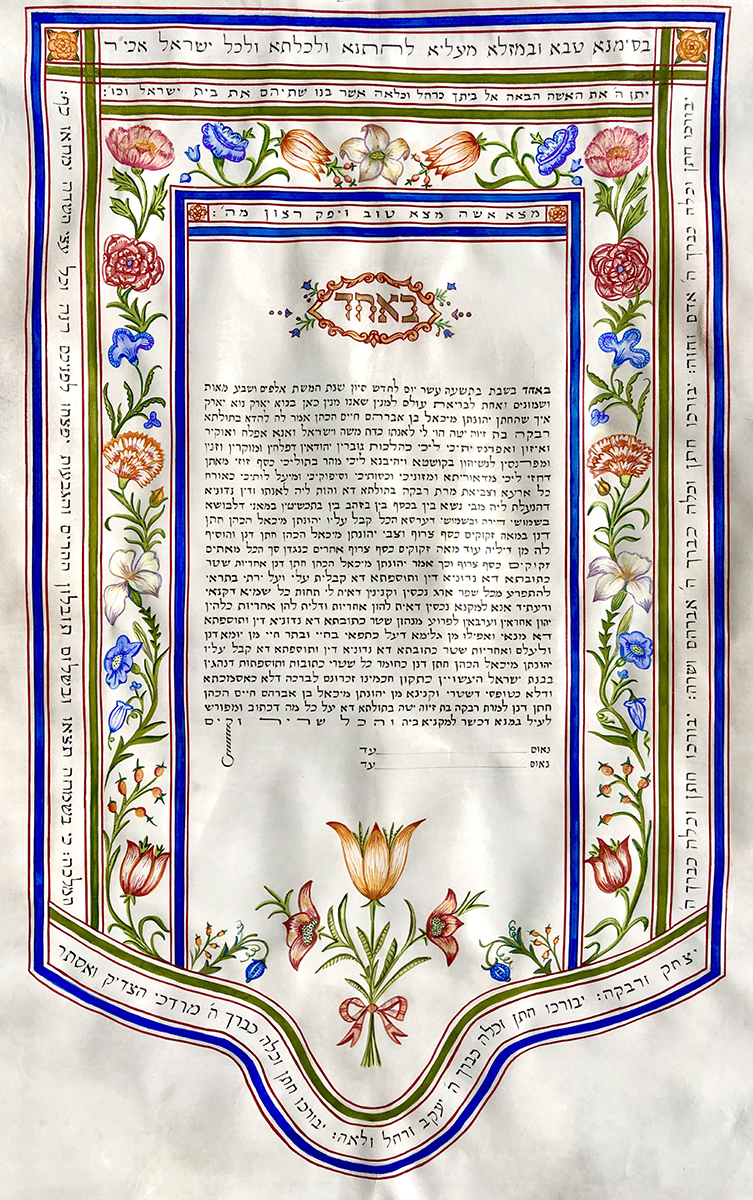 בסימנא טבא ובמזלא מעליא לחתנא ולכלתא ולכל ישראל אכי״ר
יתן ה׳ את האשה הבאה אל ביתך כרחל וכלאה אשר בנו שתיהם את בית ישראל וכו׳:
מצא אשה מצא טוב ויפק רצון מה׳:
באחד
באחד בשבת בתשעה עשר יום לחדש סיון שנת חמשת אלפים ושבע מאות
ושמונים ואחת לבריאת עולם למנין שאנו מנין כאן בנוא יארק נוא יארק
איך שהחתן יהונתן מיכאל בן אברהם חיים הכהן אמר לה להדא בתולתא
רבקה בת זיוה יטה הוי לי לאנתו כדת משה וישראל ואנא אפלח ואוקיר
ואיזון ואפרנס יתיכי ליכי כהלכות גוברין יהודאין דפלחין ומוקרין וזנין
ומפרנסין לנשיהון בקושטא ויהיבנא ליכי מהר בתוליכי כסף זוזי מאתן
דחזי ליכי מדאוריתא ומזוניכי וכסותיכי וסיפוקיכי ומיעל לותיכי כאורח
כל ארעא וצביאת מרת רבקה בתולתא דא והות ליה לאנתו ודין נדוניא
דהנעלת ליה מבי נשא בין בכסף בין בזהב בין בתכשיטין במאני דלבושא
בשמושי דירה ובשמושי דערסא הכל קבל עליו יהונתן מיכאל הכהן חתן
דנן במאה זקוקים כסף צרוף וצבי יהונתן מיכאל הכהן חתן דנן והוסיף
לה מן דיליה עוד מאה זקוקים כסף צרוף אחרים כנגדן סך הכל מאתים
זקוקים כסף צרוף וכך אמר יהונתן מיכאל הכהן חתן דנן אחריות שטר
כתובתא דא נדוניא דין ותוספתא דא קבלית עלי ועל ירתי בתראי
להתפרע מכל שפר ארג נכסין וקנינין דאית לי תחות כל שמיא דקנאי
ודעתיד אנא למקנא נכסין דאית להון אחריות ודלית להון אחריות כלהון
יהון אחראין וערבאין לפרוע מנהון שטר כתובתא דא נדוניא דין ותוספתא
דא מנאי ואפילו מן גלימא דעל כתפאי בחיי ובתר חיי מן יומא דנן
ולעלם ואחריות שטר כתובתא דא נדוניא דין ותוספתא דא קבל עליו
יהונתן מיכאל הכהן חתן דנן כחומר כל שטרי כתובות ותוספתות דנהגין
בבנת ישראל העשויין כתקון חכמינו זכרונם לברכה דלא כאסמכתא
ודלא כטופסי דשטרי וקנינא מן יהונתן מיכאל בן אברהם חיים הכהן
חתן דנן למרת רבקה בת זיוה יטה בתולתא דא על כל מה דכתוב ומפורש
לעיל במנא דכשר למקניא ביה והכל שריר וקים
נאום עד
נאום עד
יבורכו חתן וכלה כברך ה׳ אדם וחוה: יבורכו חתן וכלה כברך ה׳ אברהם ושרה: יבורכו חתן וכלה כברך ה׳
יצחק ורבקה: יבורכו חתן וכלה כברך ה׳ יעקב ורחל ולאה: יבורכו חתן וכלה כברך ה׳ מרדכי הצדיק ואסתר
המלכה: כי בשמחה תצאו ובשלום תובלון ההרים והגבעות יפצחו לפניכם רנה וכל עצי השדה ימחאו כף: